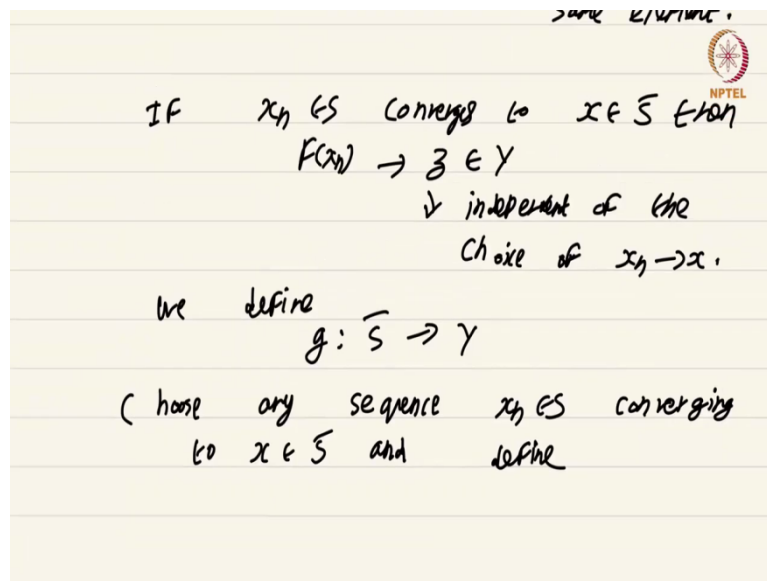 same element.
NPTEL
If xₙ ∈ S converges to x ∈ S̅ then
F(xₙ) → z ∈ Y
↓ independent of the
choice of xₙ → x.
we define
g : S̅ → Y
Choose any sequence xₙ ∈ S converging
to x ∈ S̅ and define